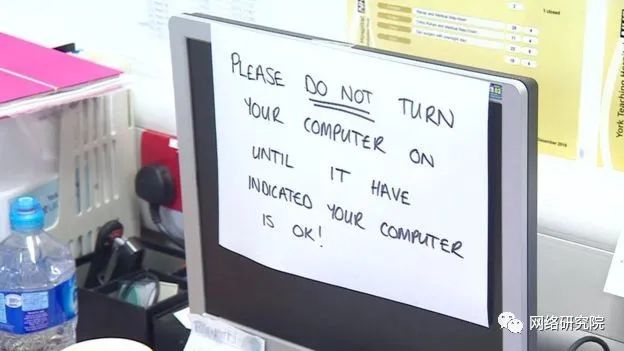 PLEASE DO NOT TURN
YOUR COMPUTER ON
UNTIL IT HAVE
INDICATED YOUR COMPUTER
IS OK!
York Teaching Hos
网络研究院